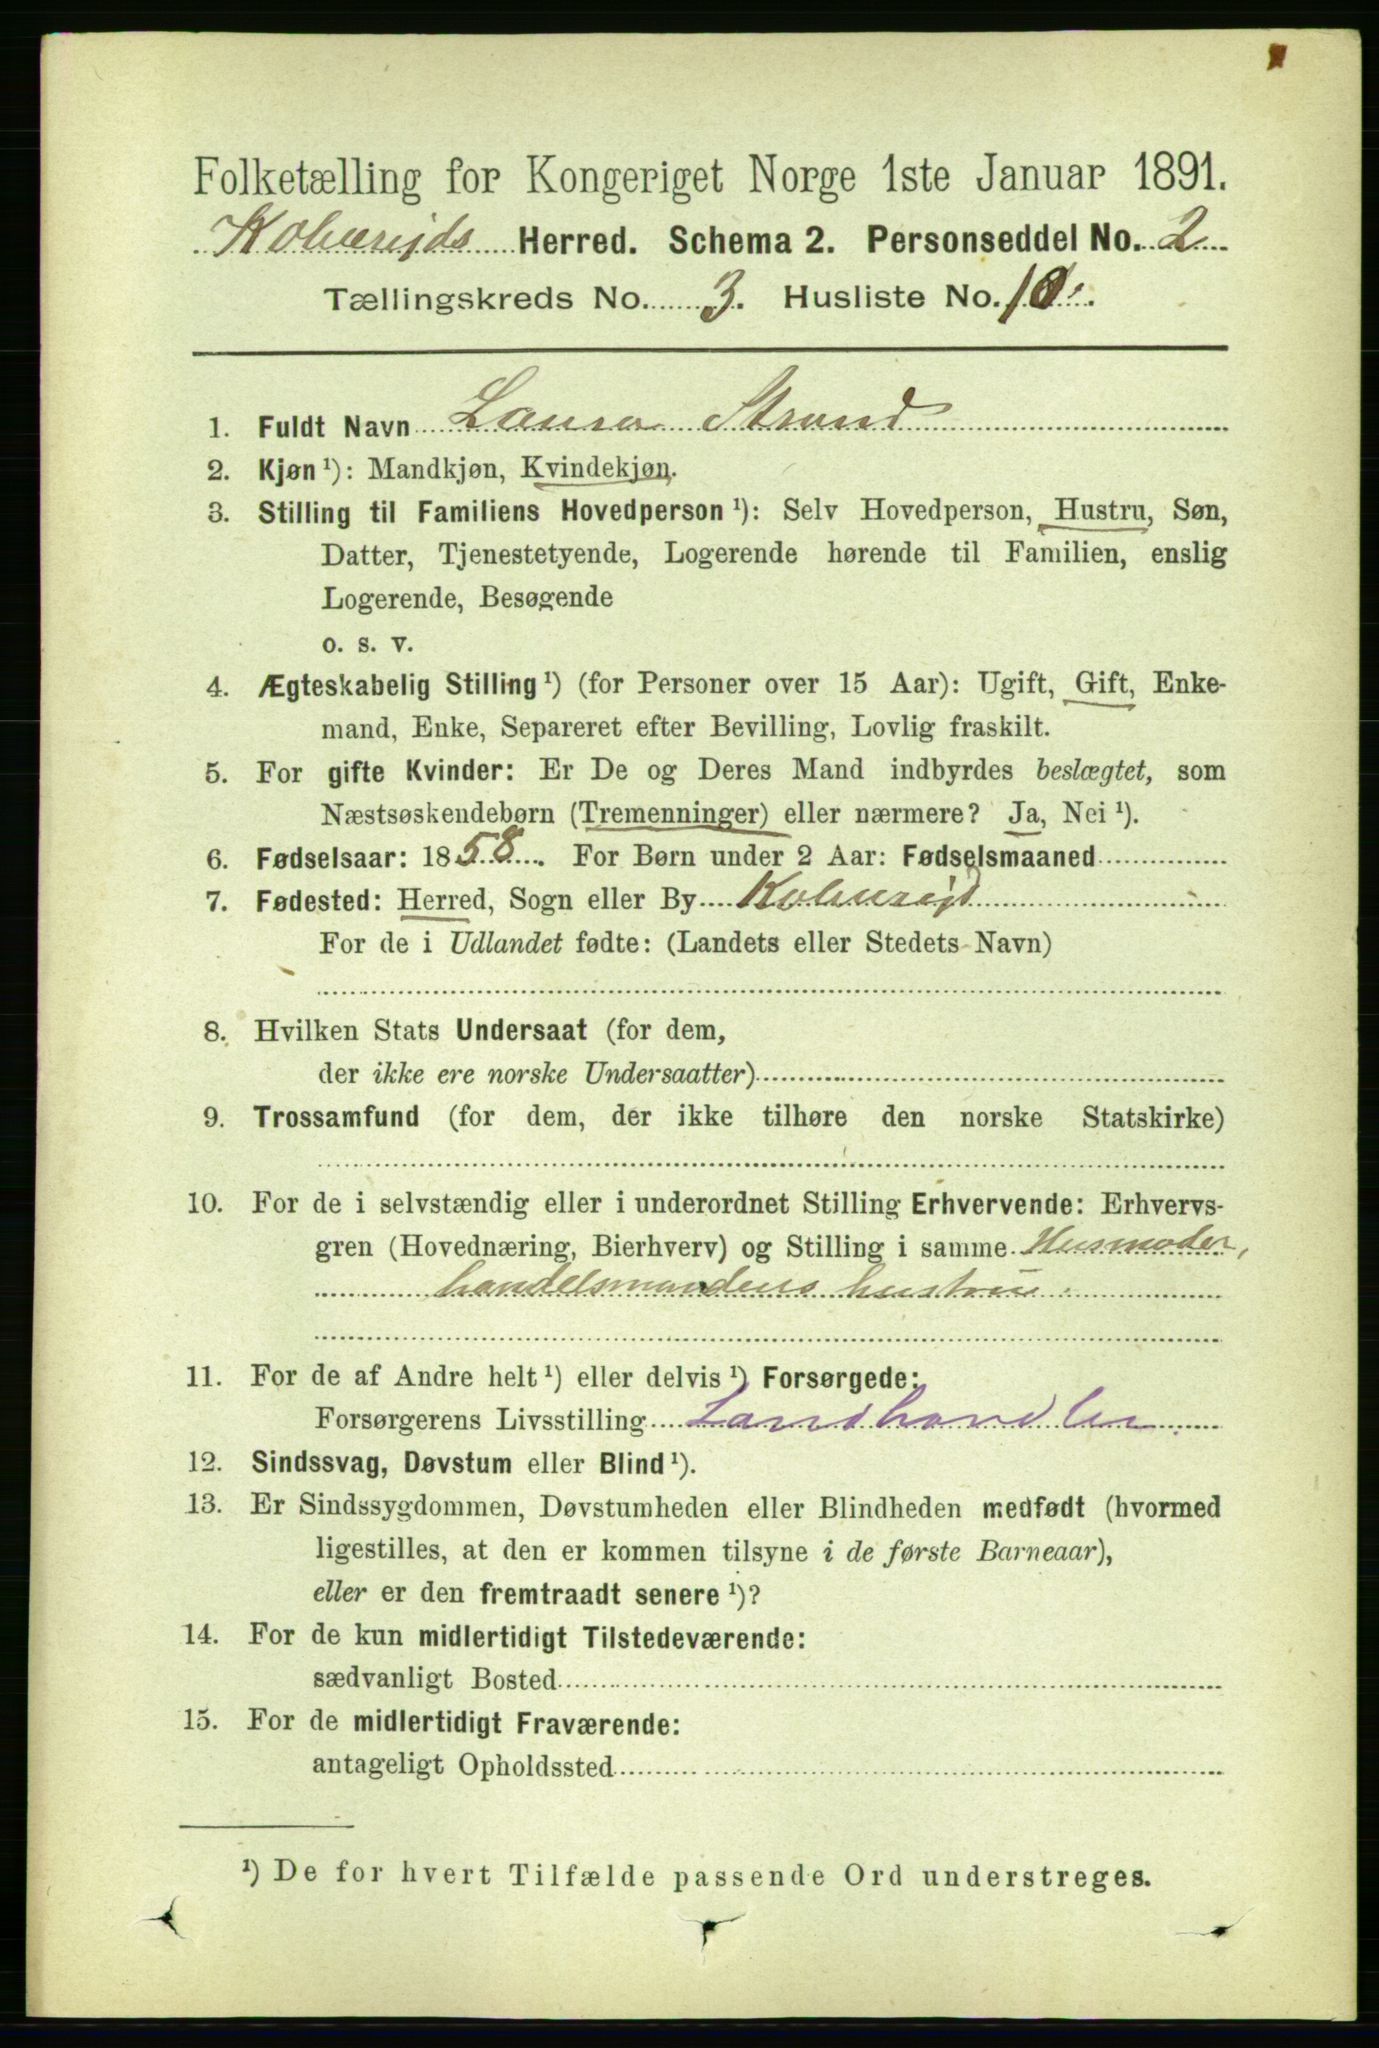 Folketælling for Kongeriget Norge 1ste Januar 1891.
Kolvereids Herred. Schema 2. Personseddel No. 2
Tællingskreds No. 3. Husliste No. 10.
1. Fuldt Navn Laura Strand
2. Kjøn ¹): Mandkjøn, Kvindekjøn.
3. Stilling til Familiens Hovedperson ¹): Selv Hovedperson, Hustru, Søn,
Datter, Tjenestetyende, Logerende hørende til Familien, enslig
Logerende, Besøgende
o. s. v.
4. Ægteskabelig Stilling ¹) (for Personer over 15 Aar): Ugift, Gift, Enke-
mand, Enke, Separeret efter Bevilling, Lovlig fraskilt.
5. For gifte Kvinder: Er De og Deres Mand indbyrdes beslægtet, som
Næstsøskendebørn (Tremenninger) eller nærmere? Ja, Nei ¹).
6. Fødselsaar: 1858. For Børn under 2 Aar: Fødselsmaaned
7. Fødested: Herred, Sogn eller By Kolvereid
For de i Udlandet fødte: (Landets eller Stedets Navn)
8. Hvilken Stats Undersaat (for dem,
der ikke ere norske Undersaatter)
9. Trossamfund (for dem, der ikke tilhøre den norske Statskirke)
10. For de i selvstændig eller i underordnet Stilling Erhvervende: Erhvervs-
gren (Hovednæring, Bierhverv) og Stilling i samme Husmoder,
handelsmandens hustru
11. For de af Andre helt ¹) eller delvis ¹) Forsørgede:
Forsørgerens Livsstilling Landhandler
12. Sindssvag, Døvstum eller Blind ¹).
13. Er Sindssygdommen, Døvstumheden eller Blindheden medfødt (hvormed
ligestilles, at den er kommen tilsyne i de første Barneaar),
eller er den fremtraadt senere ¹)?
14. For de kun midlertidigt Tilstedeværende:
sædvanligt Bosted
15. For de midlertidigt Fraværende:
antageligt Opholdssted
¹) De for hvert Tilfælde passende Ord understreges.